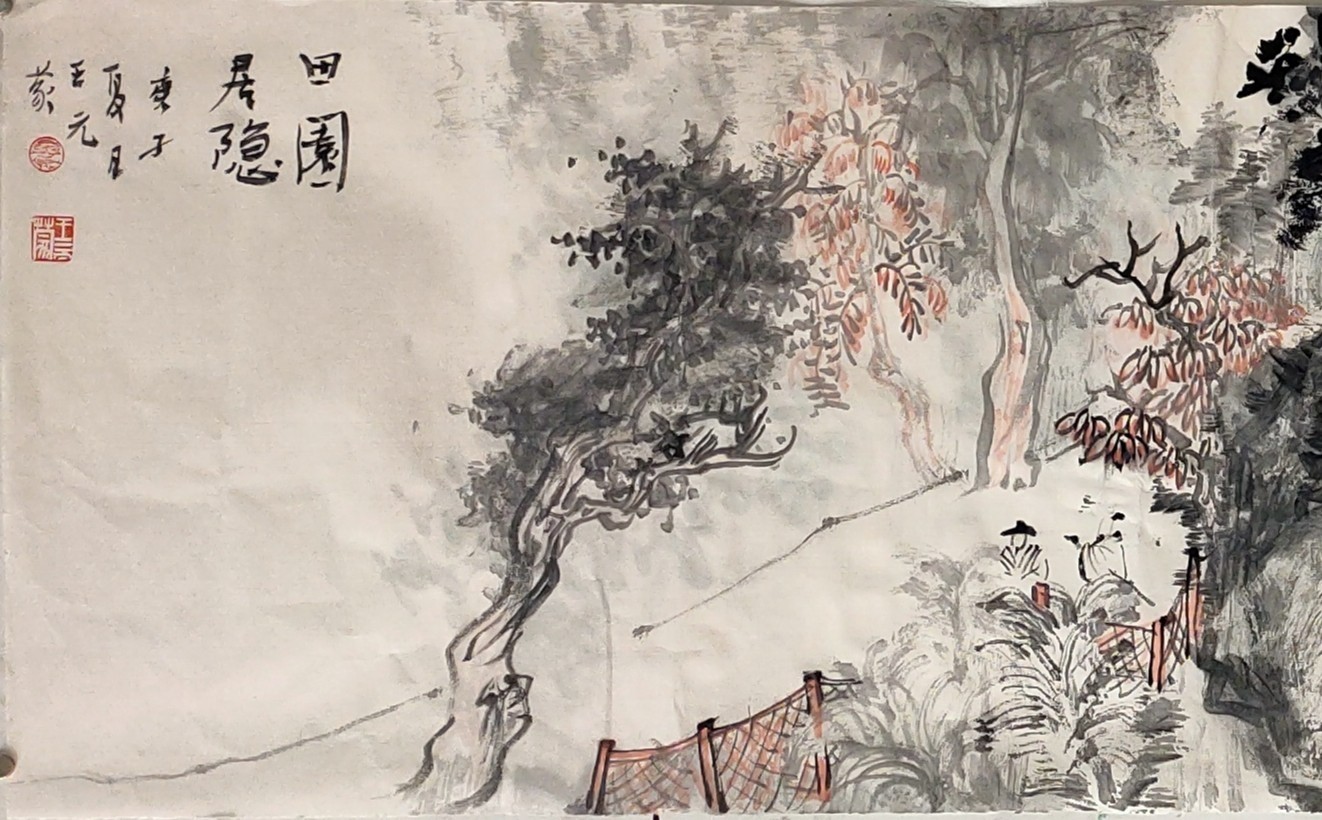 田園
居隐
庚子
夏月
王元
蒙